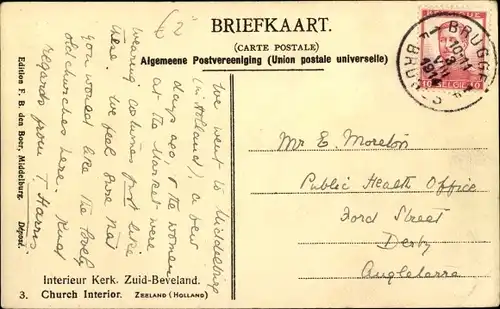 (2
BRIEFKAART.
(CARTE POSTALE)
Algemeene Postvereeniging (Union postale universelle)
BELGIQUE
10 BELGIË 10
BRUGGE
10-11
VIII
BRUGES
We went to Middelburg
(in Holland), a few
days ago, & the women
at the Market were
wearing costumes just like
these. We feel sure that
you would like the lovely
old churches here. Kind
regards from T Harris
Mr E. Moreton
Public Health Office
Ford Street
Derby
Angleterre
Edition F. B. den Boer, Middelburg. Déposé.
Interieur Kerk. Zuid-Beveland.
3. Church Interior. ZEELAND (HOLLAND)